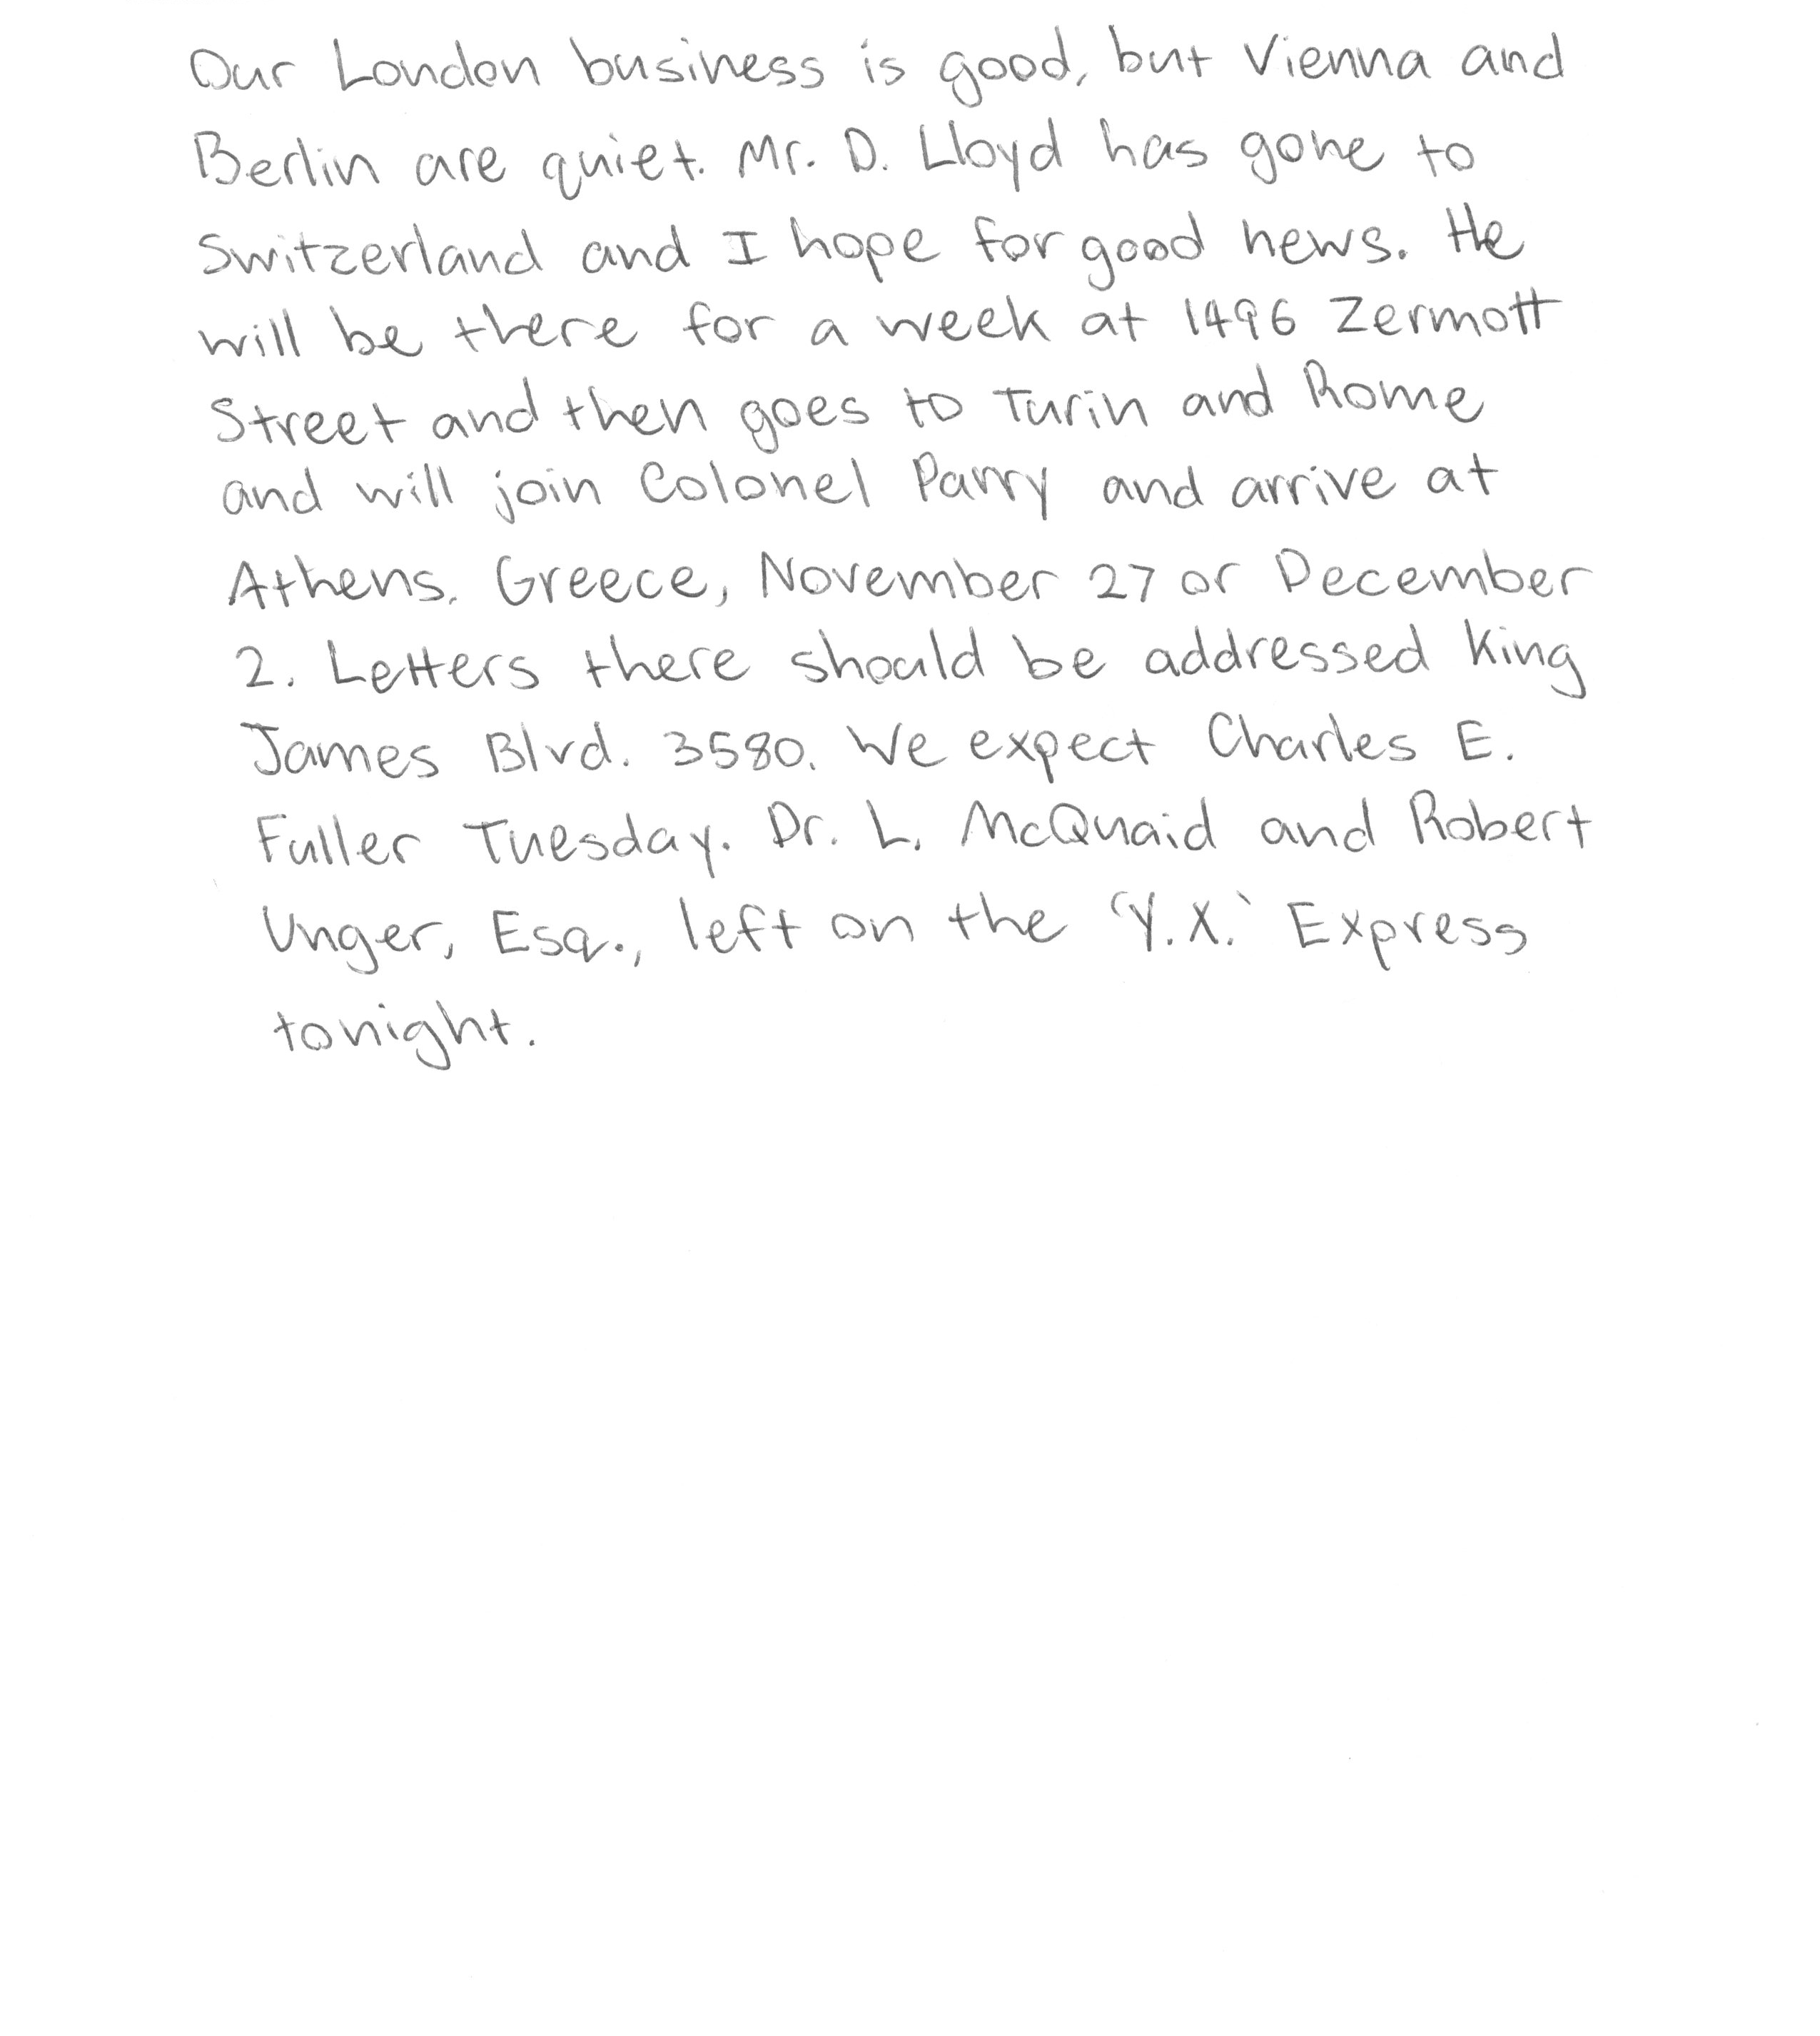 Our London business is good, but Vienna and
Berlin are quiet. Mr. D. Lloyd has gone to
Switzerland and I hope for good news. He
will be there for a week at 1496 Zermott
Street and then goes to Turin and Rome
and will join Colonel Parry and arrive at
Athens. Greece, November 27 or December
2. Letters there should be addressed King
James Blvd. 3580. We expect Charles E.
Fuller Tuesday. Dr. L. McQuaid and Robert
Unger, Esq., left on the 'Y.X.' Express
tonight.